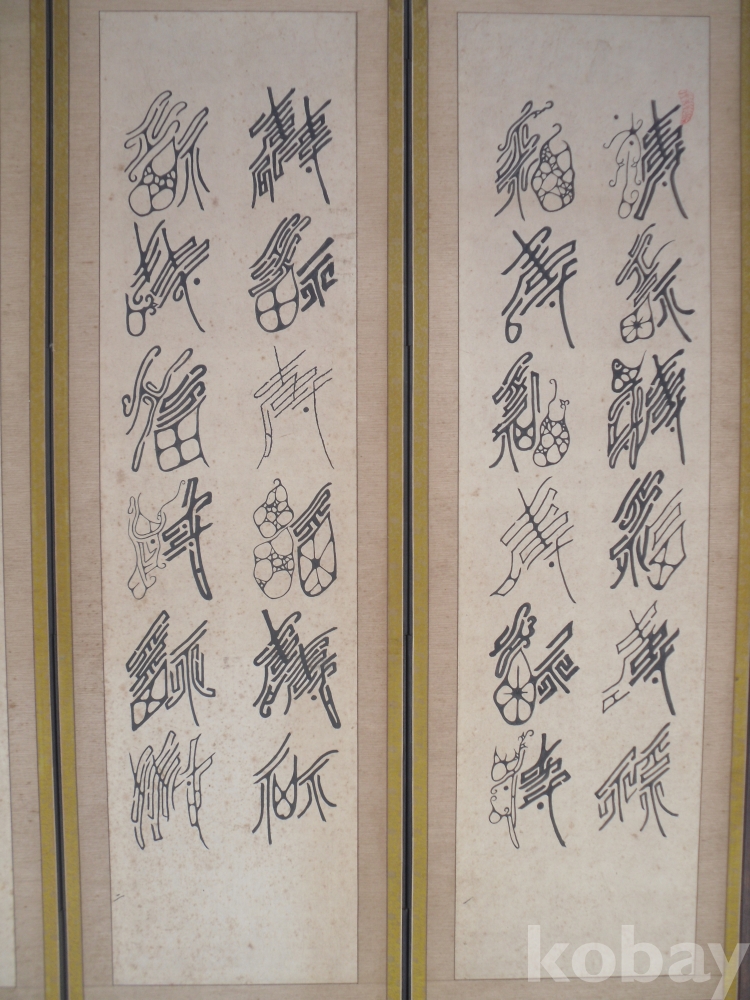 壽福壽福壽福
福壽福壽福壽
壽福壽福壽福
福壽福壽福壽
kobay